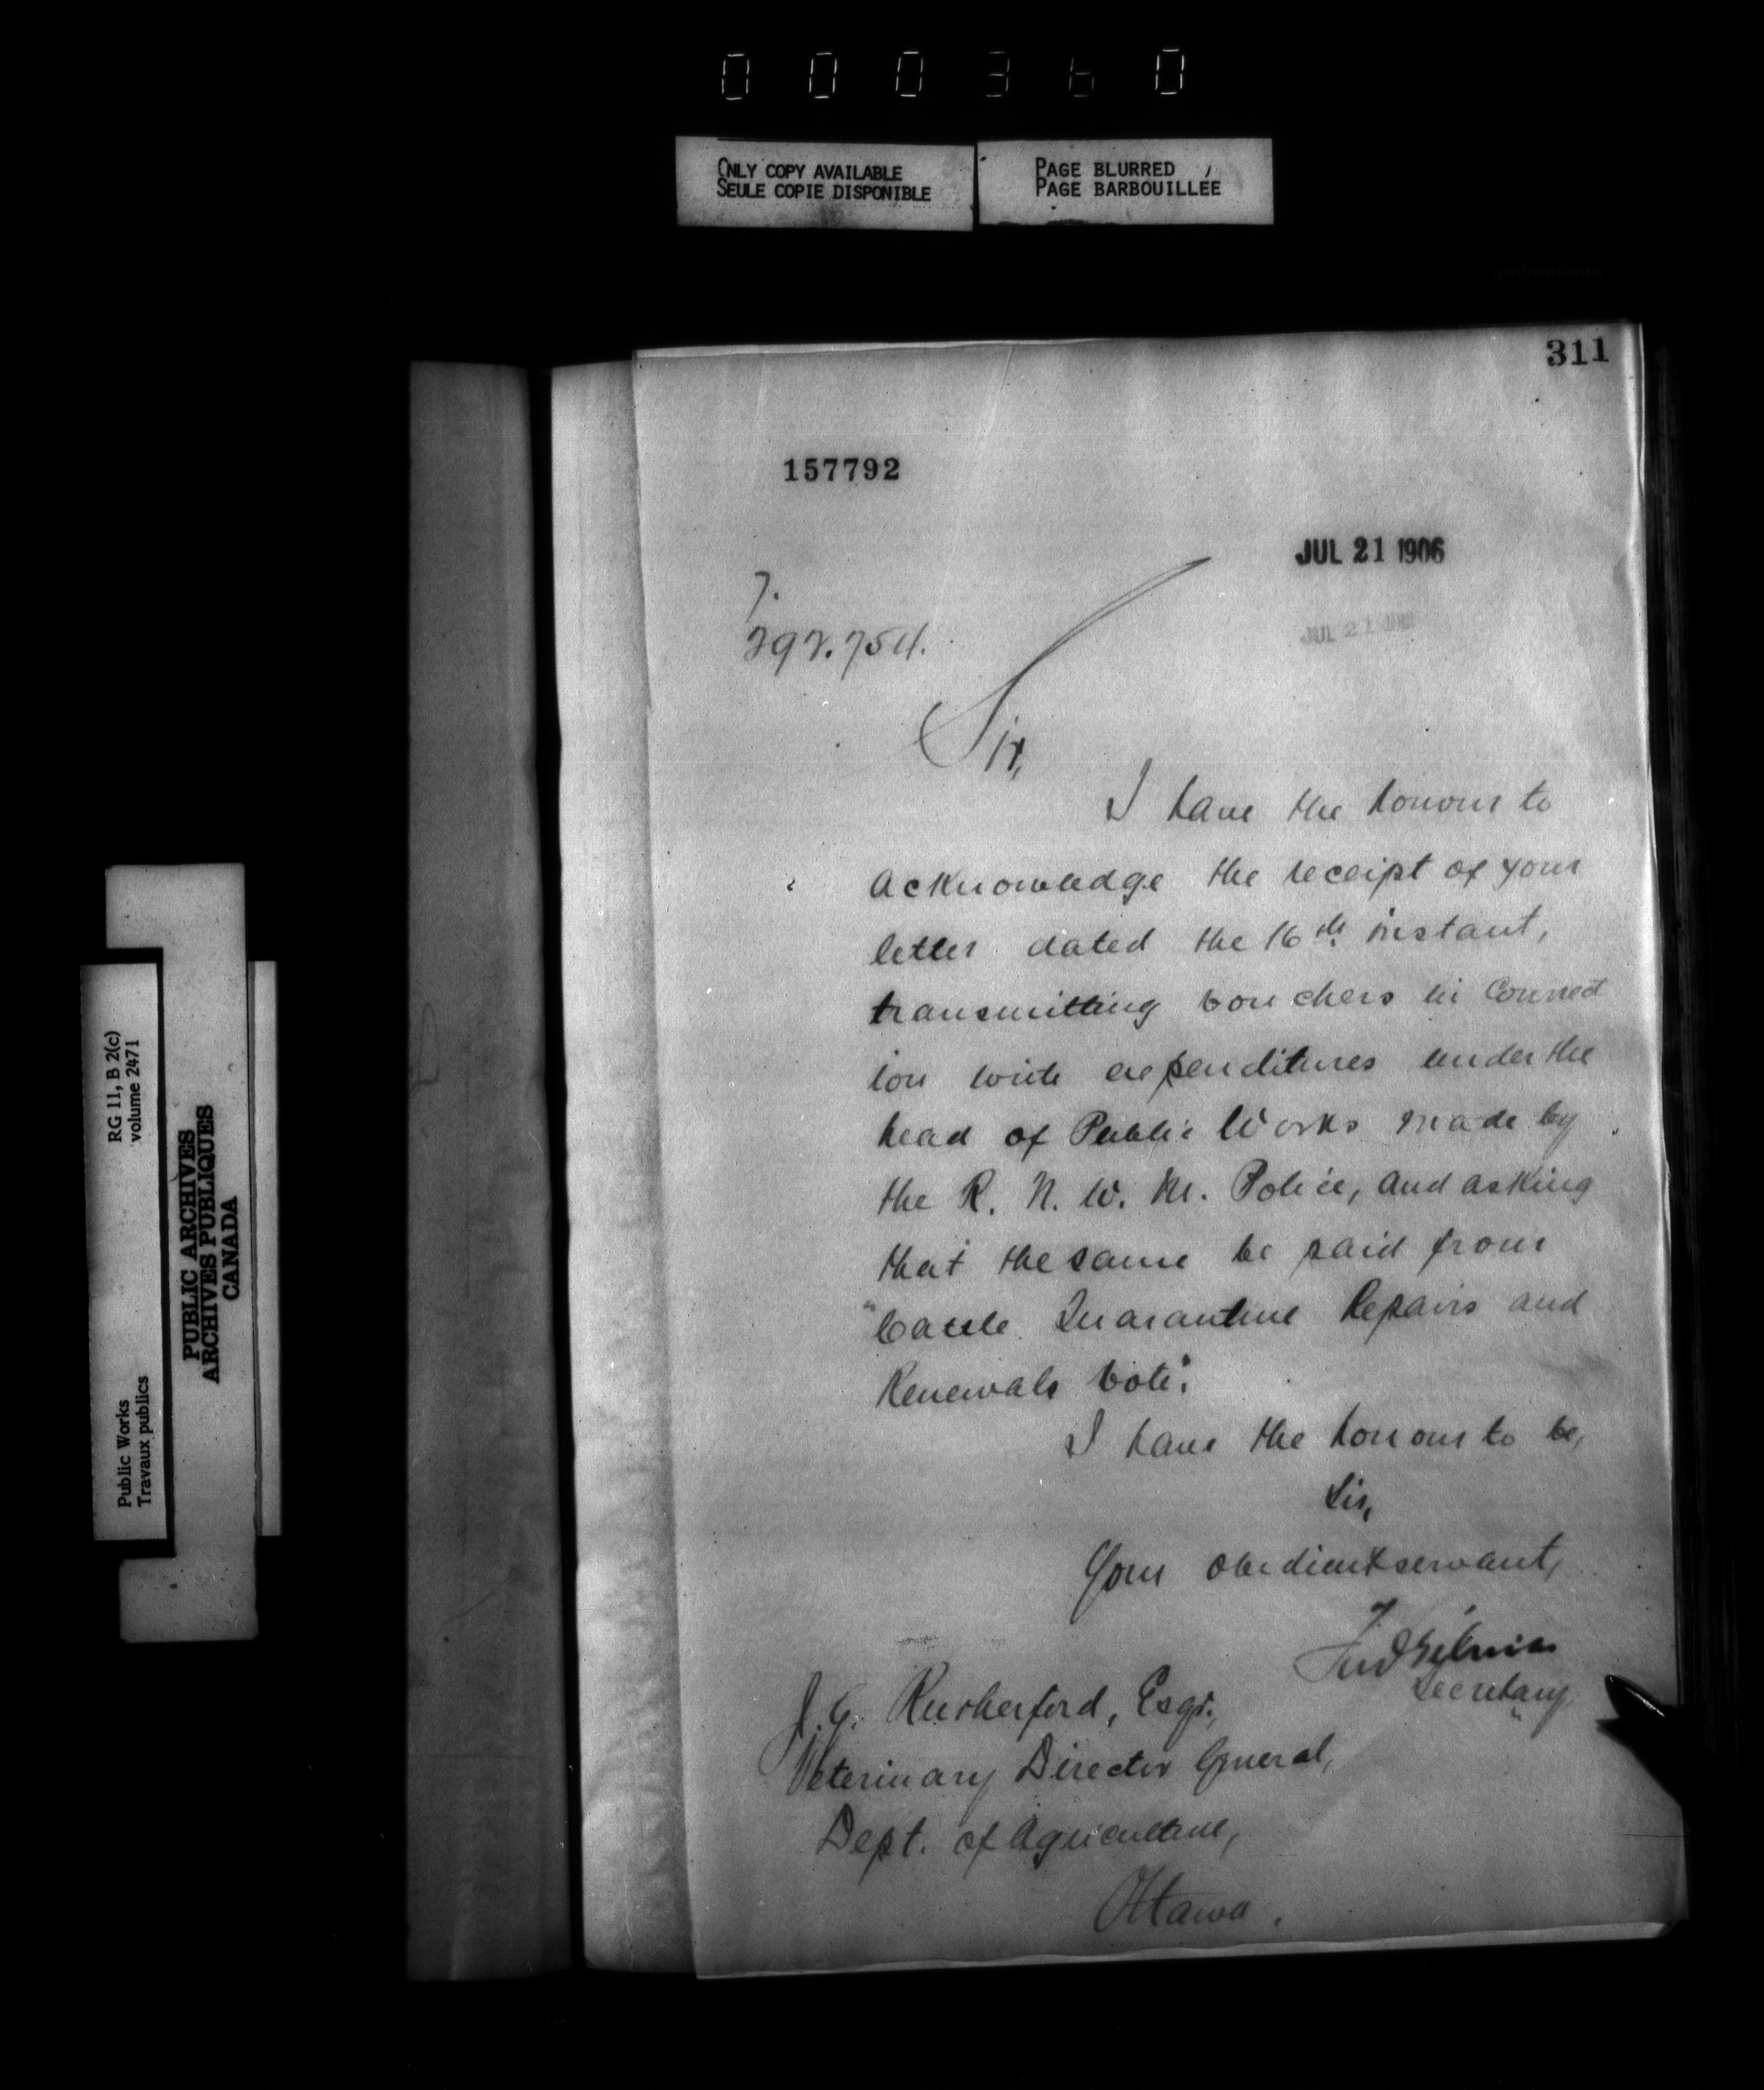 000360
ONLY COPY AVAILABLE
SEULE COPIE DISPONIBLE
PAGE BLURRED
PAGE BARBOUILLEE
311
157792
JUL 21 1906
JUL 21 1906
7.
292.754.
Sir,
I have the honour to
acknowledge the receipt of your
letter dated the 16th instant,
transmitting vouchers in Connect
ion with expenditures under the
head of Public Works made by
the R. N. W. M. Police, and asking
that the same be paid from
"Cattle Quarantine Repairs and
Renewals Vote".
I have the honour to be,
Sir,
Your obedient servant,
Secretary
J. G. Rutherford, Esqr.,
Veterinary Director General,
Dept. of Agriculture,
Ottawa.
RG 11, B 2(c)
volume 2471
PUBLIC ARCHIVES
ARCHIVES PUBLIQUES
CANADA
Public Works
Travaux publics